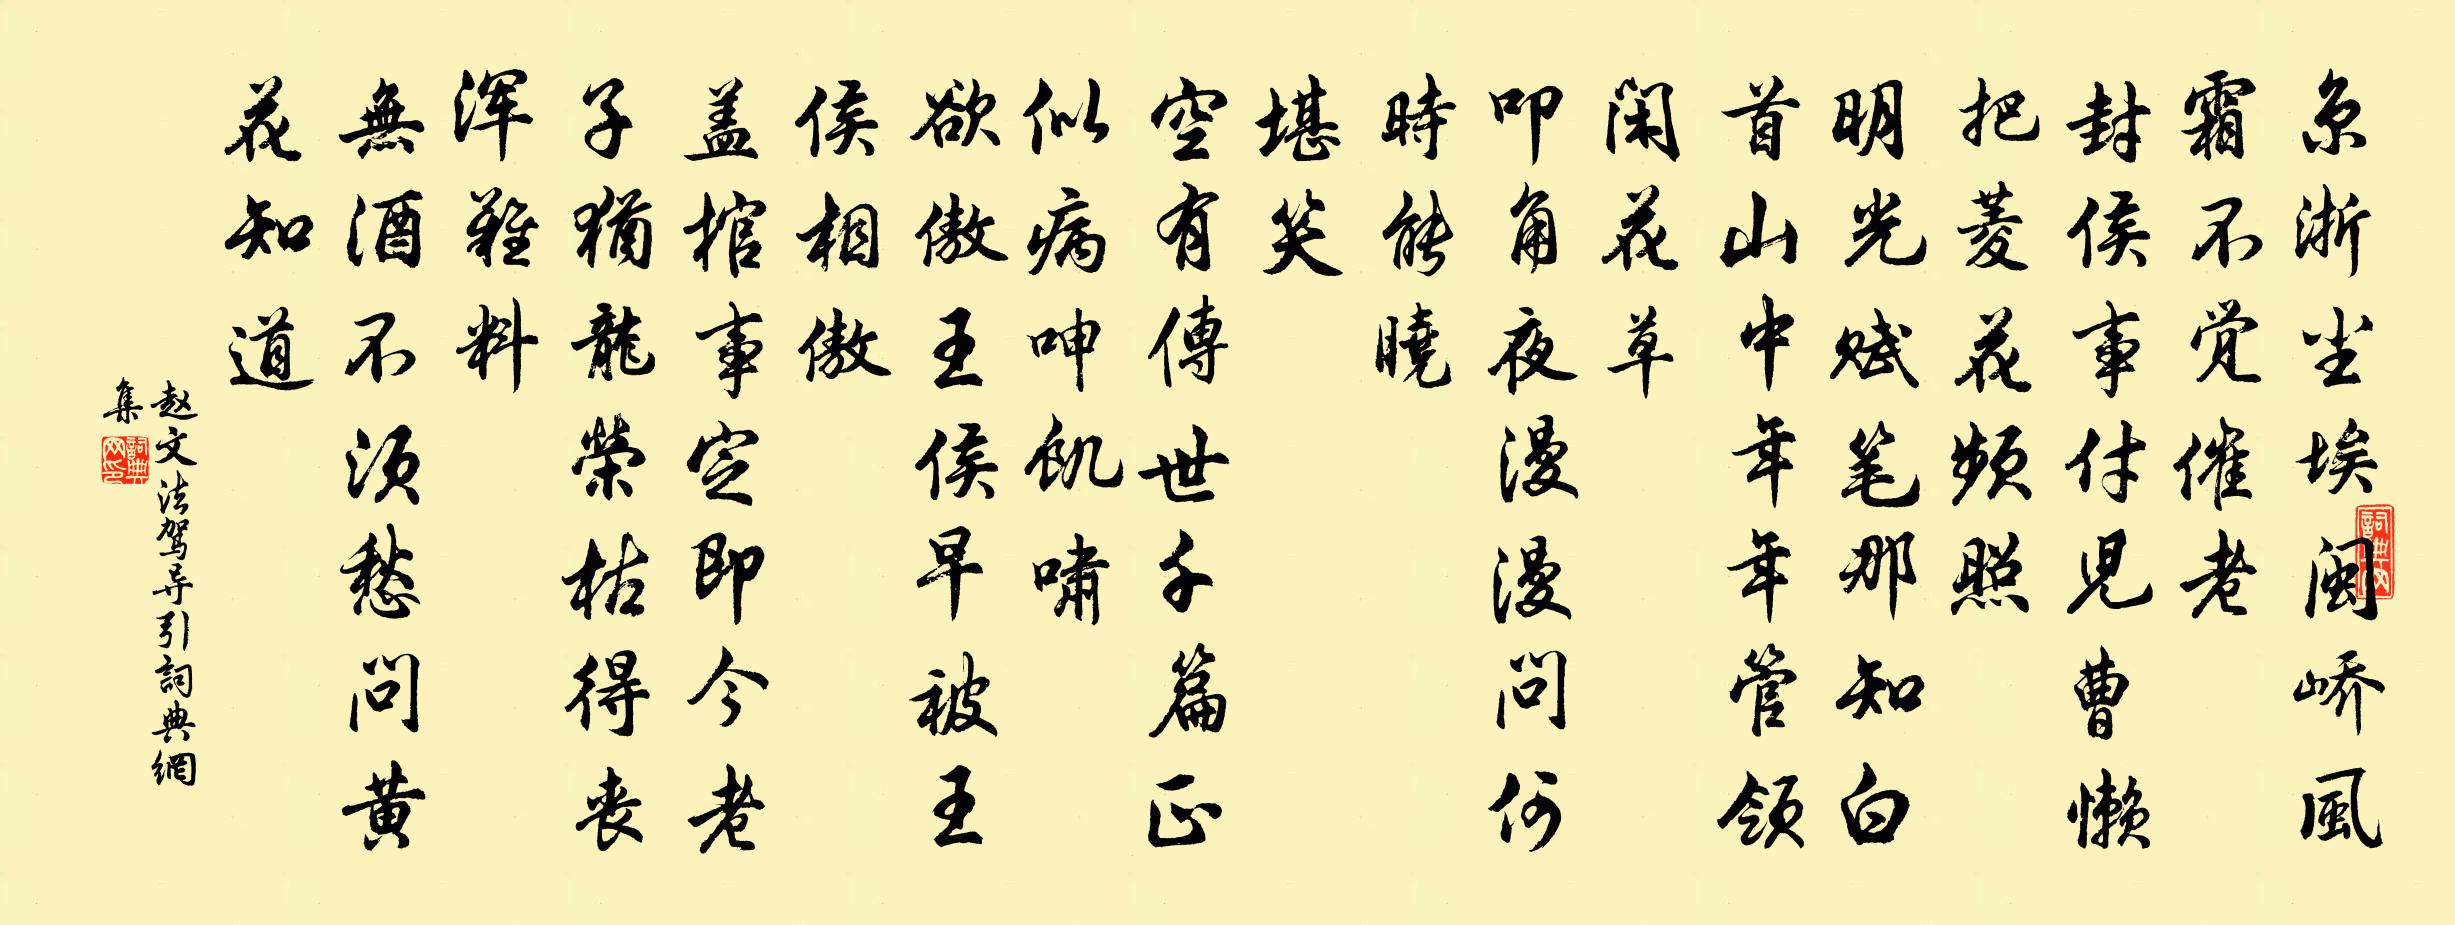 京浙尘埃闽峤風
霜不觉催老
封侯事付児曹懒
把菱花频照
明光赋笔那知白
首山中年年管领
闲花草
叩角夜漫漫问何
時能曉
堪笑
空有傳世千篇正
似病呻飢嘯
欲傲王侯早被王
侯相傲
盖棺事定即今老
子猶龍榮枯得丧
浑難料
無酒不须愁问黄
花知道
赵文法驾导引詞典網
集